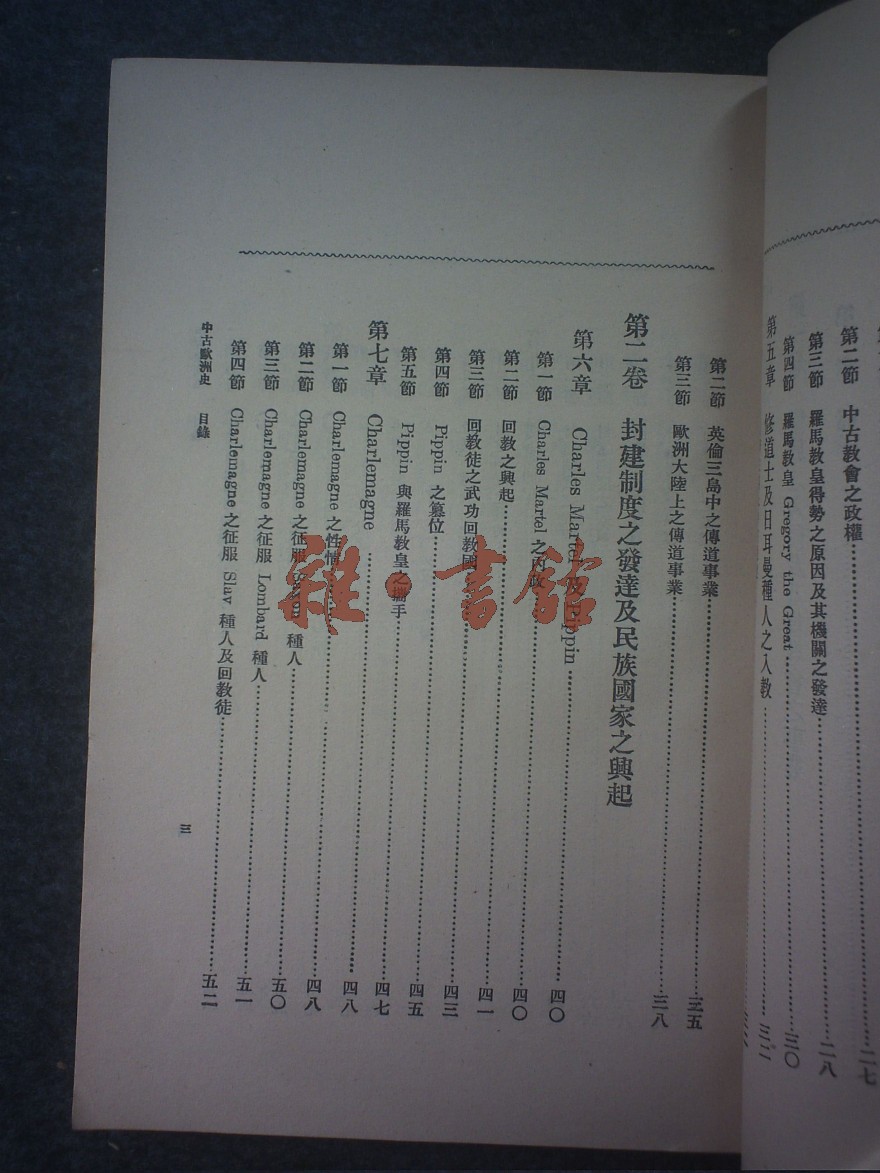 第二節 中古教會之政權……二七
第三節 羅馬教皇得勢之原因及其機關之發達……二八
第四節 羅馬教皇 Gregory the Great……三〇
第五章 修道士及日耳曼種人之入教……
第二節 英倫三島中之傳道事業……三五
第三節 歐洲大陸上之傳道事業……三八
第二卷 封建制度之發達及民族國家之興起
第六章 Charles Martel 及 Pippin……四〇
第一節 Charles Martel 之內政……四〇
第二節 回教之興起……四一
第三節 回教徒之武功回教國……四三
第四節 Pippin 之篡位……四五
第五節 Pippin 與羅馬教皇之攜手……四七
第七章 Charlemagne……四八
第一節 Charlemagne 之性情……四八
第二節 Charlemagne 之征服 Saxon 種人……五〇
第三節 Charlemagne 之征服 Lombard 種人……五一
第四節 Charlemagne 之征服 Slav 種人及回教徒……五二
中古歐洲史 目錄
三
雜·書館